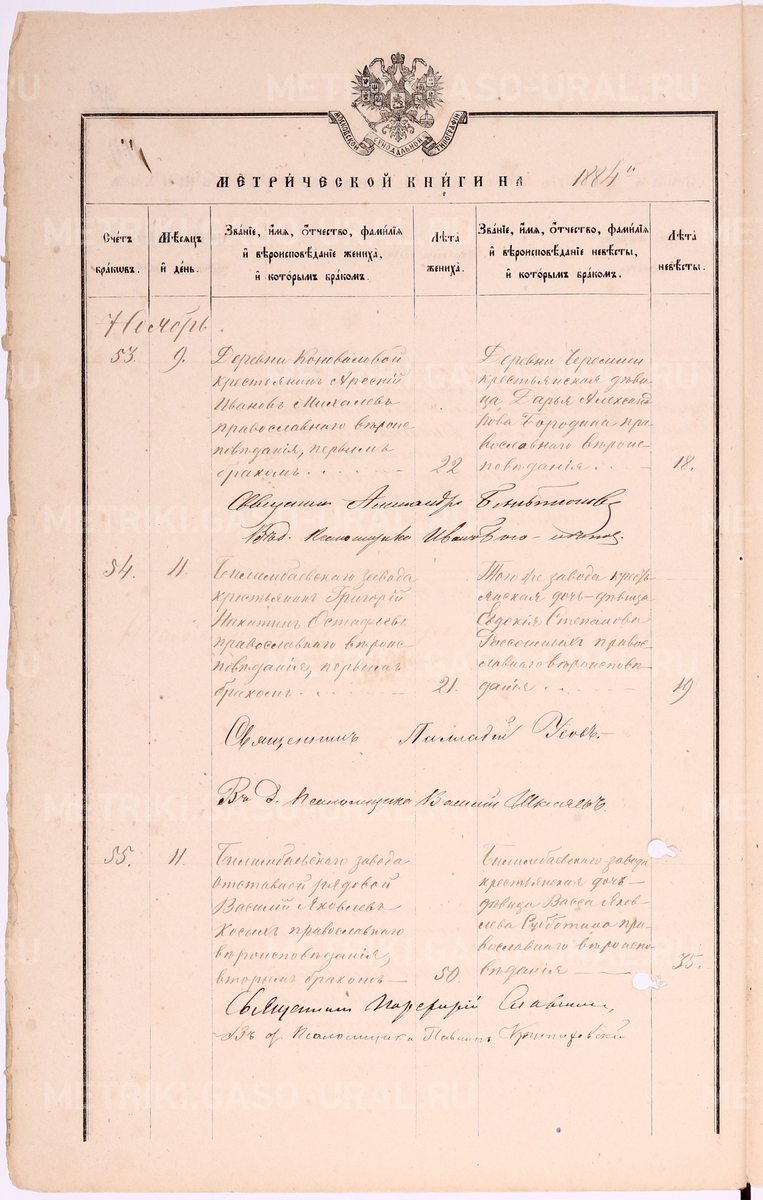 МОСКОВСКОЙ СѴНОДАЛЬНОЙ ТИПОГРАФІИ
МЕТРИЧЕСКОЙ КНИГИ НА 1884
Счетъ браковъ.
Мѣсяцъ и день.
Званіе, имя, отчество, фамилія и вѣроисповѣданіе жениха, и которымъ бракомъ.
Лѣта жениха.
Званіе, имя, отчество, фамилія и вѣроисповѣданіе невѣсты, и которымъ бракомъ.
Лѣта невѣсты.
Ноябрь
53. 9.
Деревни Коноваловой
крестьянинъ Арсеній
Ивановъ Михалевъ
православнаго вѣроис
повѣданія, первымъ
бракомъ
22
Деревни Черемши
крестьянская дѣви
ца Дарья Александ
рова Бородина пра
вославнаго вѣроис
повѣданія
18.
Священникъ Александръ
Въ д. Псаломщика Иванъ
54. 11.
Билимбаевскаго завода
крестьянинъ Григорій
Никитинъ Остафьевъ
православнаго вѣроис
повѣданія, первымъ
бракомъ
21.
Того же завода кресть
янская дочь-дѣвица
Евдокія Степанова
православнаго вѣроисповѣ
данія
19
Священникъ Палладій Усовъ.
Въ д. Псаломщика
55. 11.
Билимбаевскаго завода
отставной рядовой
Василій Яковлевъ
Косыхъ православнаго
вѣроисповѣданія,
вторымъ бракомъ
50.
Билимбаевскаго завода
крестьянская дочь-
дѣвица Васса Яков
лева Субботина пра
вославнаго вѣроиспо
вѣданія
35.
Священникъ Порфирій Славнинъ,
Въ д. Псаломщика
METRIKI.GASO-URAL.RU